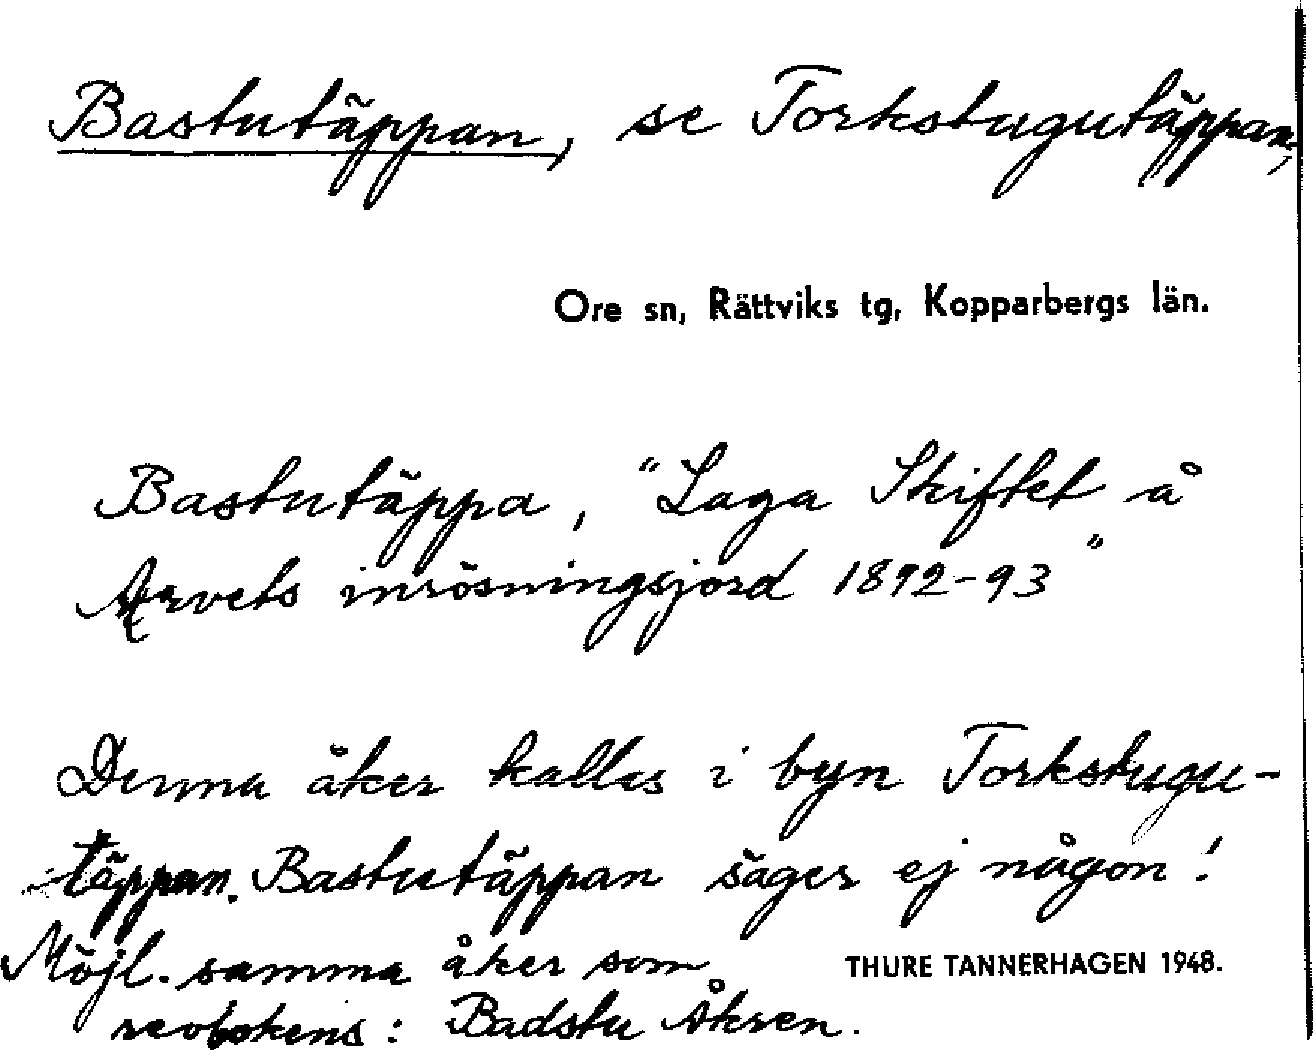 Bastutäppan, se Torkstugutäppan,
Ore sn, Rättviks tg, Kopparbergs län.
Bastutäppa, "Laga Skiftet å
Arvets inrösningsjord 1892-93"
Denna åker kallas i byn Torkstugu-
täppan. Bastutäppan säger ej någon!
Möjl. samma åker som
THURE TANNERHAGEN 1948.
revbokens: Badstu Åkren.